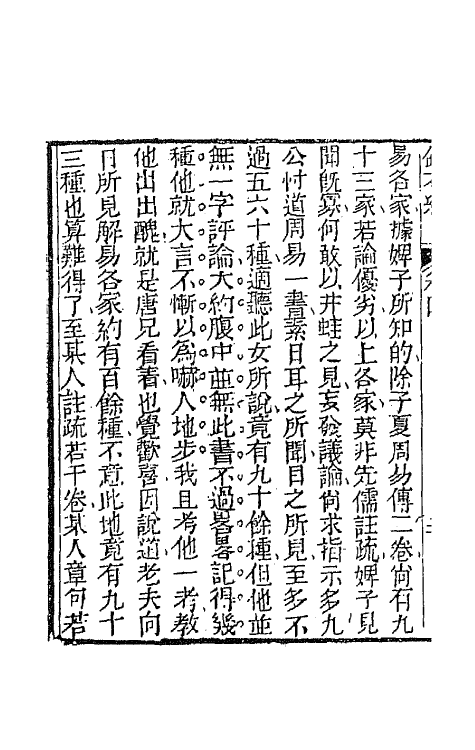 易各家據婢子所知的除子夏周易傳二卷尚有九
十三家若論優劣以上各家莫非先儒註疏婢子見
聞既寡何敢以井蛙之見妄發議論尚求指示多九
公忖道周易一書素日耳之所聞目之所見至多不
過五六十種適聽此女所說竟有九十餘種但他並
無一字評論大約腹中並無此書不過略略記得幾
種他就大言不慚以為嚇人地步我且考他一考教
他出出醜就是唐兄看著也覺歡喜因說道老夫向
日所見解易各家約有百餘種不意此地竟有九十
三種也算難得了至某人註疏若干卷某人章句若